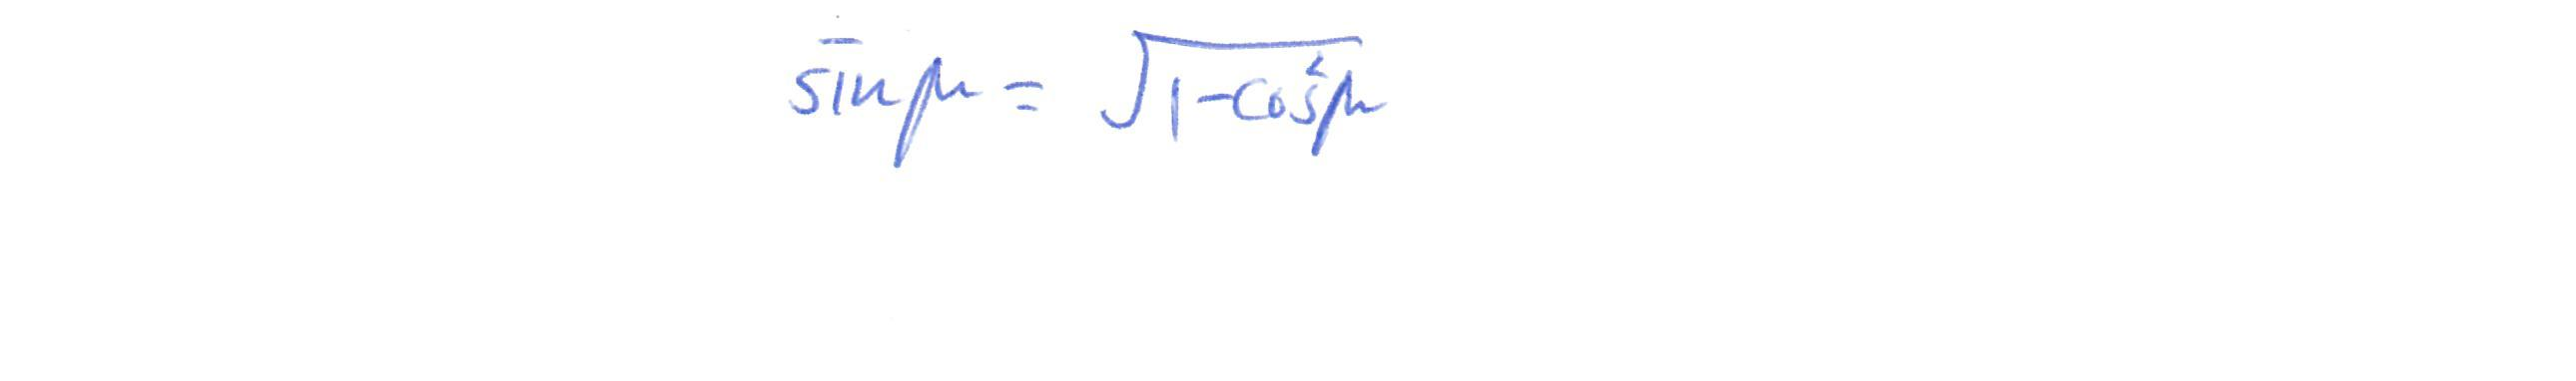 sin μ = √(1-cos²μ)